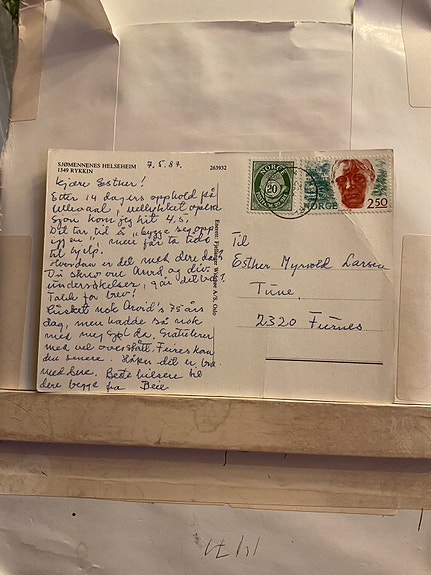 SJØMENNENES HELSEHEIM
1349 RYKKIN
7.5.87.
263932
Kjære Esther!
Etter 14 dagers opphold på
Ullevaal, vellykket opera
sjon kom jeg hit 4.5.
Det tar tid å "bygge seg opp
igjen", men får ta tiden
til hjelp.
Hvordan er det med dere da?
Du skrev om Arvid, og div.
undersøkelser, går det bra?
Takk for brev!
Husket nok Arvid's 75 års
dag, men hadde så nok
med meg sjøl da. Gratulerer
med vel overstått. Feires kan
du senere. Håper det er bra
med dere. Beste hilsener til
dere begge fra
Enerett: Fjellanger Widerøe A/S, Oslo
NORGE
20
NORGE
2.50
Til
Esther Myrvold Larsen
Tune,
2320 Furnes